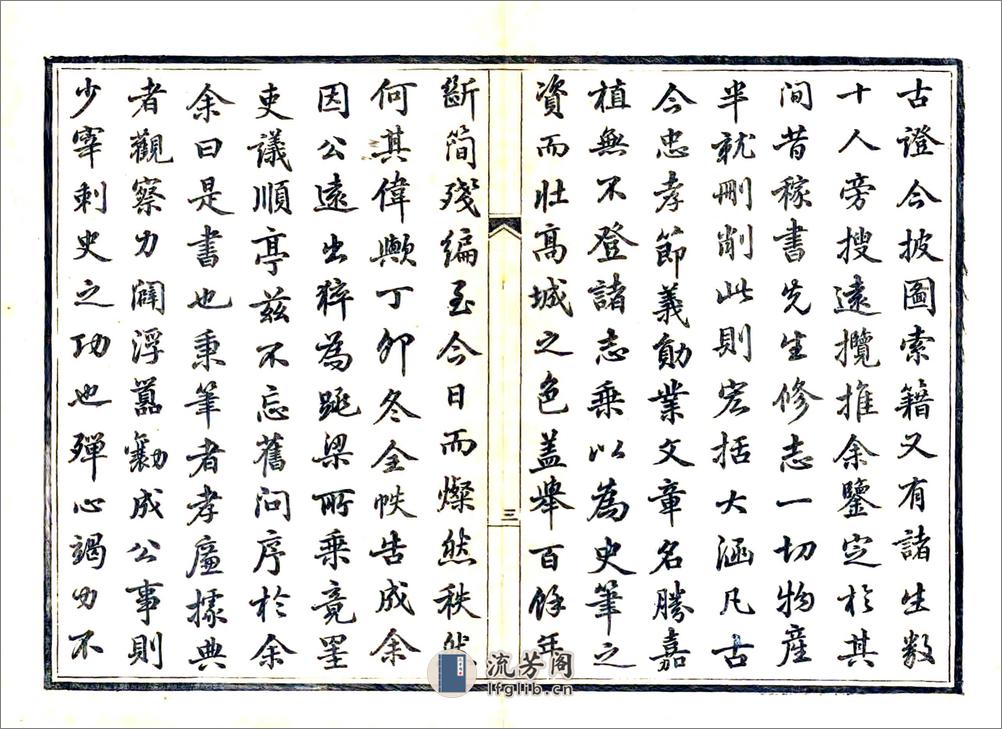 古證今披圖索籍又有諸生數
十人旁搜遠攬推余鑒定於其
间昔稼書先生修志一切物產
半就刪削此則宏括大涵凡古
今忠孝節義勛業文章名勝嘉
植無不登諸志乘以為史筆之
資而壯高城之色蓋舉百餘年
三
斷简殘編至今日而燦然秩然
何其偉歟丁卯冬全帙告成余
因公遠出猝為跳梁所乘竟罣
吏議順亭兹不忘舊问序於余
余曰是書也秉筆者孝廉據典
者觀察力闢浮囂勷成公事則
少宰刺史之功也殫心竭力不
流芳阁
lfglib.cn